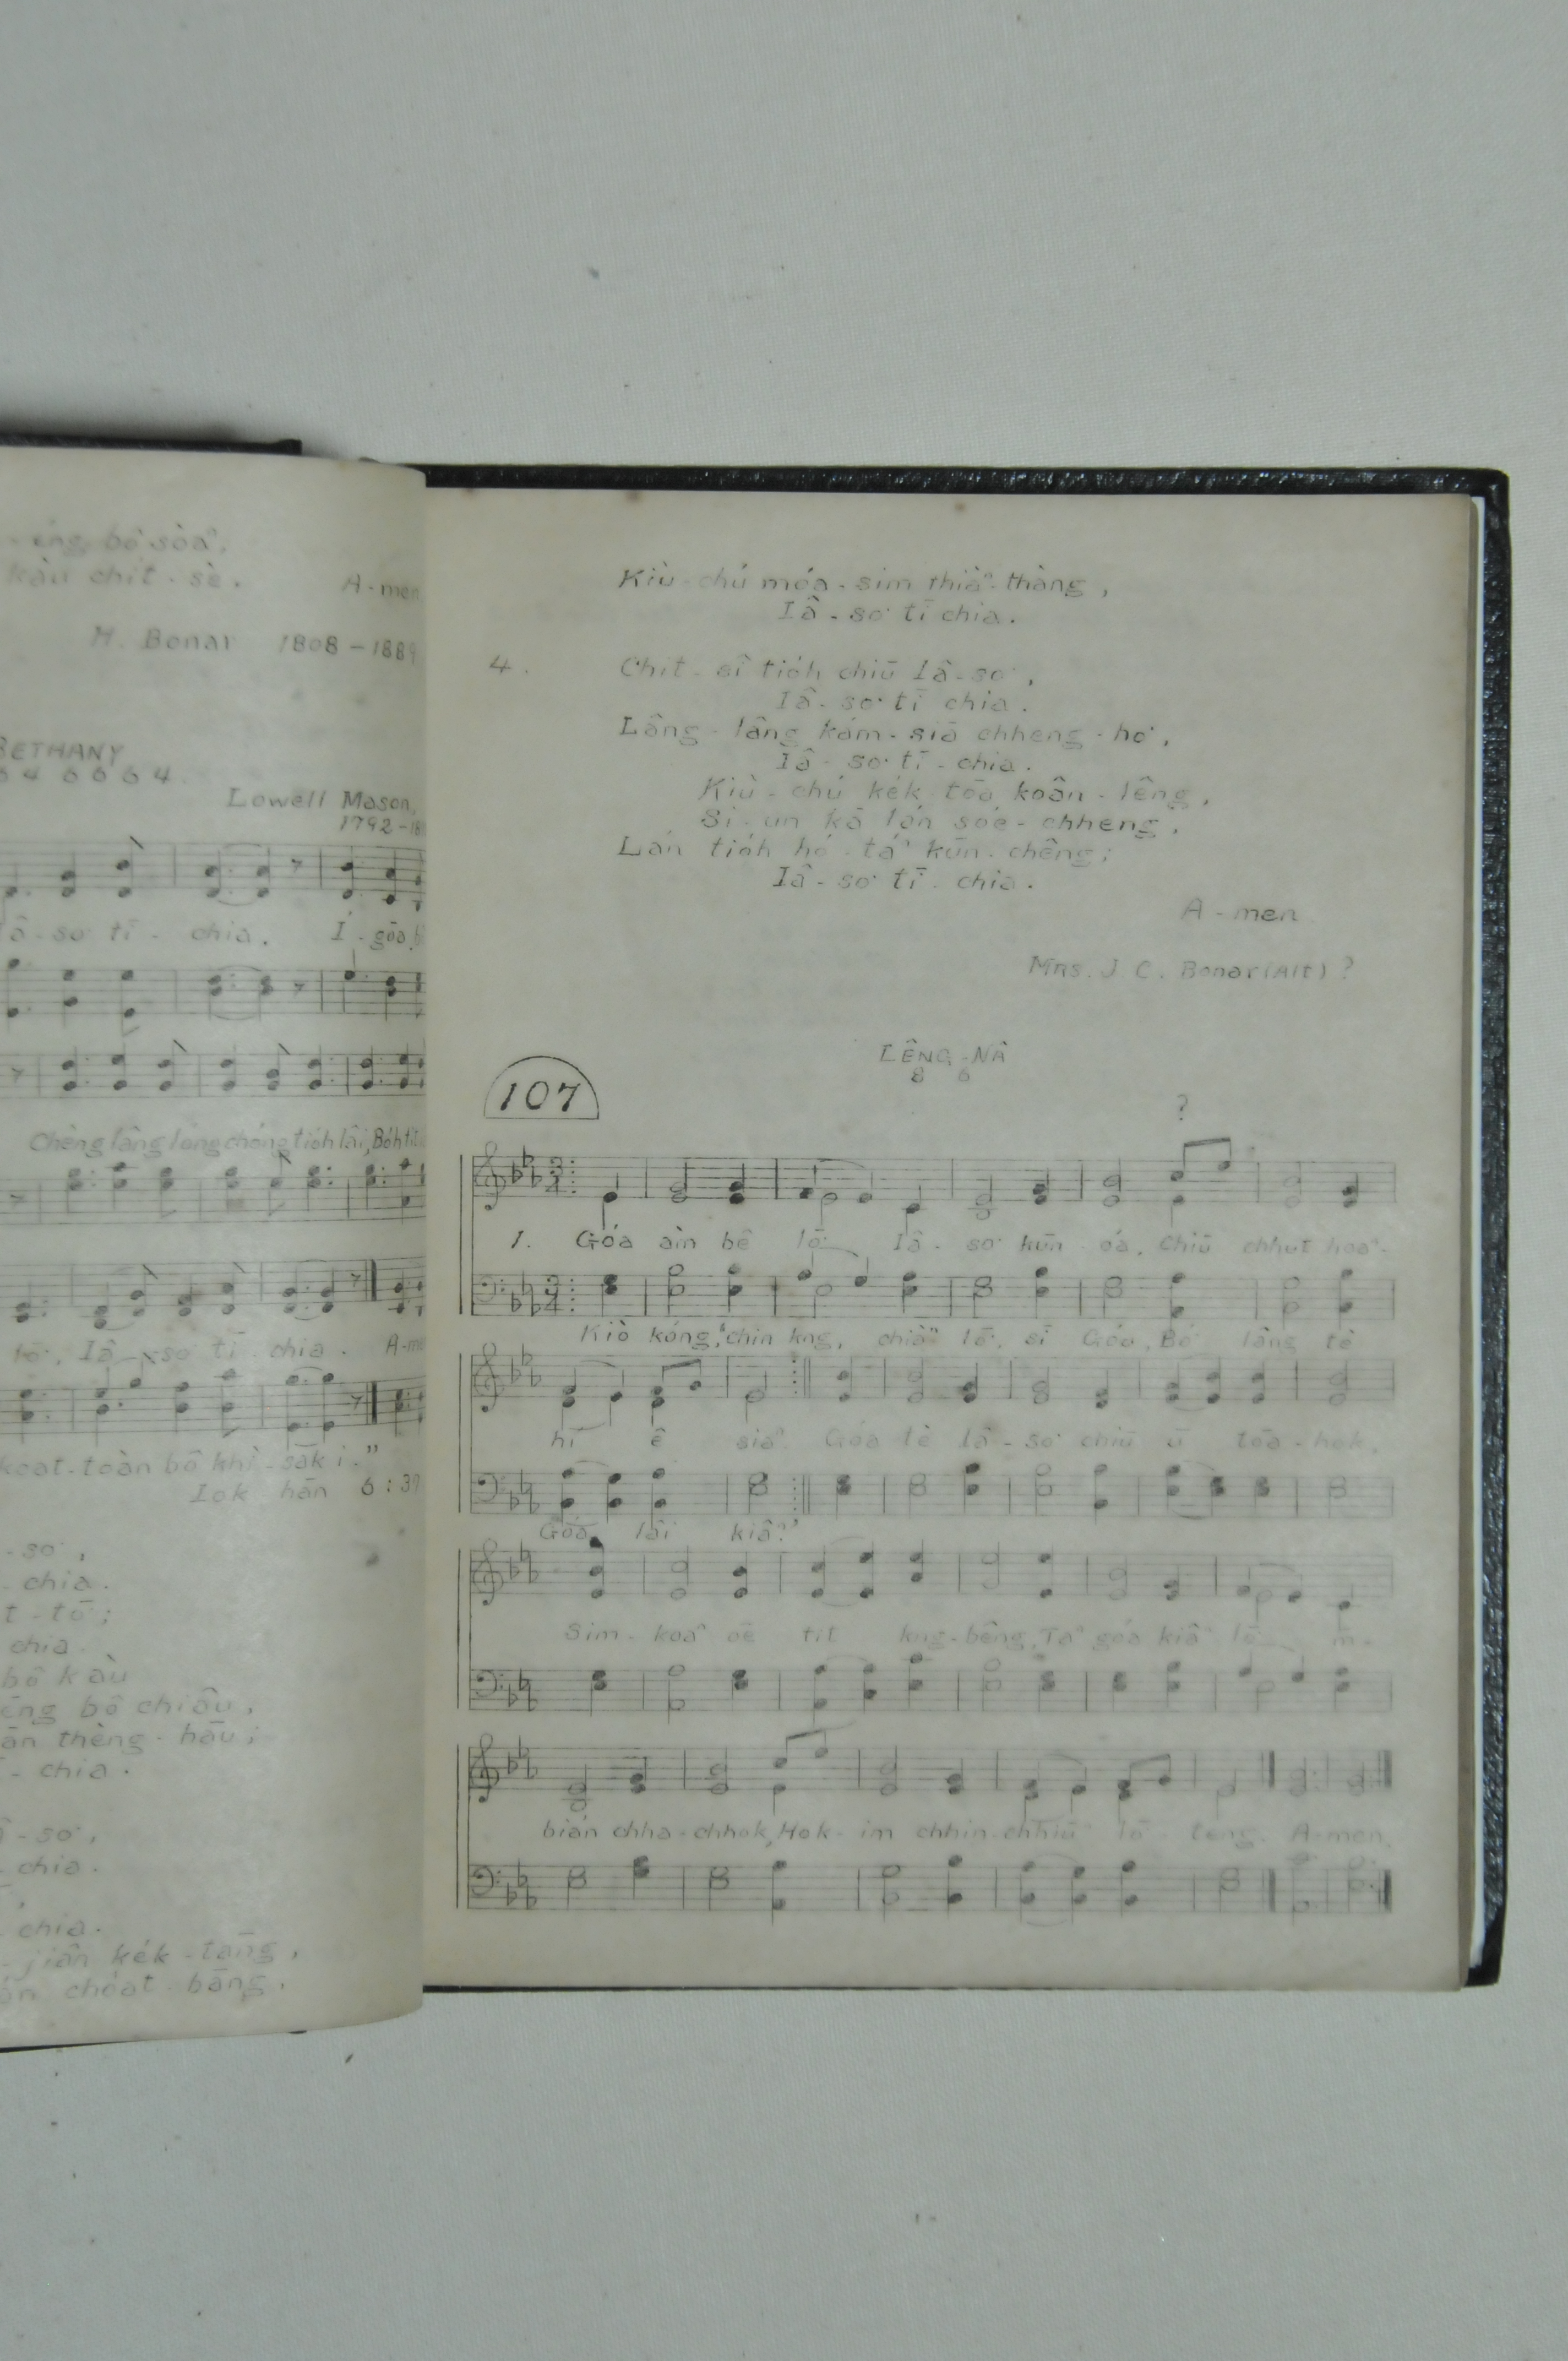 bô soàⁿ,
kàu chit-sè.
A-men
H. Bonar 1808-1889
BETHANY
6 4 6 6 6 4
Lowell Mason,
1792-18
Iâ-so͘ tī-chia. Í-gōa
Chèng lâng lóng chóng tio̍h lâi, Bo̍h tit
lō͘, Iâ-so͘ tī-chia. A-me
koat-toàn bô khì-sak i."
Iok-hān 6:37
-so͘,
-chia.
chia.
bô kàu
bô chiâu,
thèng-hāu;
-chia.
-so͘,
-chia.
chia.
-jiân ke̍k-tāng,
choa̍t-bāng,
Kiù-chú móa-sim thiàⁿ-thàng,
Iâ-so͘ tī chia.
4. Chit-sî tio̍h chiū Iâ-so͘,
Iâ-so͘ tī chia.
Lâng-lâng kám-siā chheng-ho͘,
Iâ-so͘ tī-chia.
Kiù-chú ke̍k-tōa koân-lêng,
Si-un kā lán sóe-chheng,
Lán tio̍h hó-táⁿ kūn-chêng;
Iâ-so͘ tī-chia.
A-men
Mrs. J C. Bonar (Alt) ?
LÊNG-NÂ
8 6
107
?
1. Góa àin bê lō͘ Iâ-so͘ kūn óa, Chiū chhut hoaⁿ-
Kiò kóng, "chin kng, chiàⁿ lō͘, sī Góa, Bô lâng tè
hí ê siaⁿ. Góa tè Iâ-so͘ chiū ū tōa-hok,
Góa lâi kiâⁿ."
Sim-koaⁿ oē tit kng-bêng, Taⁿ góa kiâⁿ lō͘ m̄-
bián chha-chhok, Hok-im chhin-chhiūⁿ lō͘-teng. A-men.